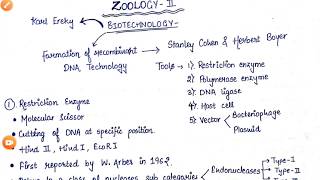 ZOOLOGY-II
Karl Ereky
BIOTECHNOLOGY-
Formation of recombinant
DNA Technology
Stanley Cohen & Herbert Boyer
Tools
1). Restriction enzyme
2). Polymerase enzyme
3). DNA ligase
4). Host cell
5). Vector
Bacteriophage
Plasmid
① Restriction Enzyme
• Molecular Scissor
• Cutting of DNA at specific position.
Hind II, Hind I, EcoR I
• First reported by W. Arber in 1962.
class of nucleases sub categories
Endonucleases
Type-I
Type-II